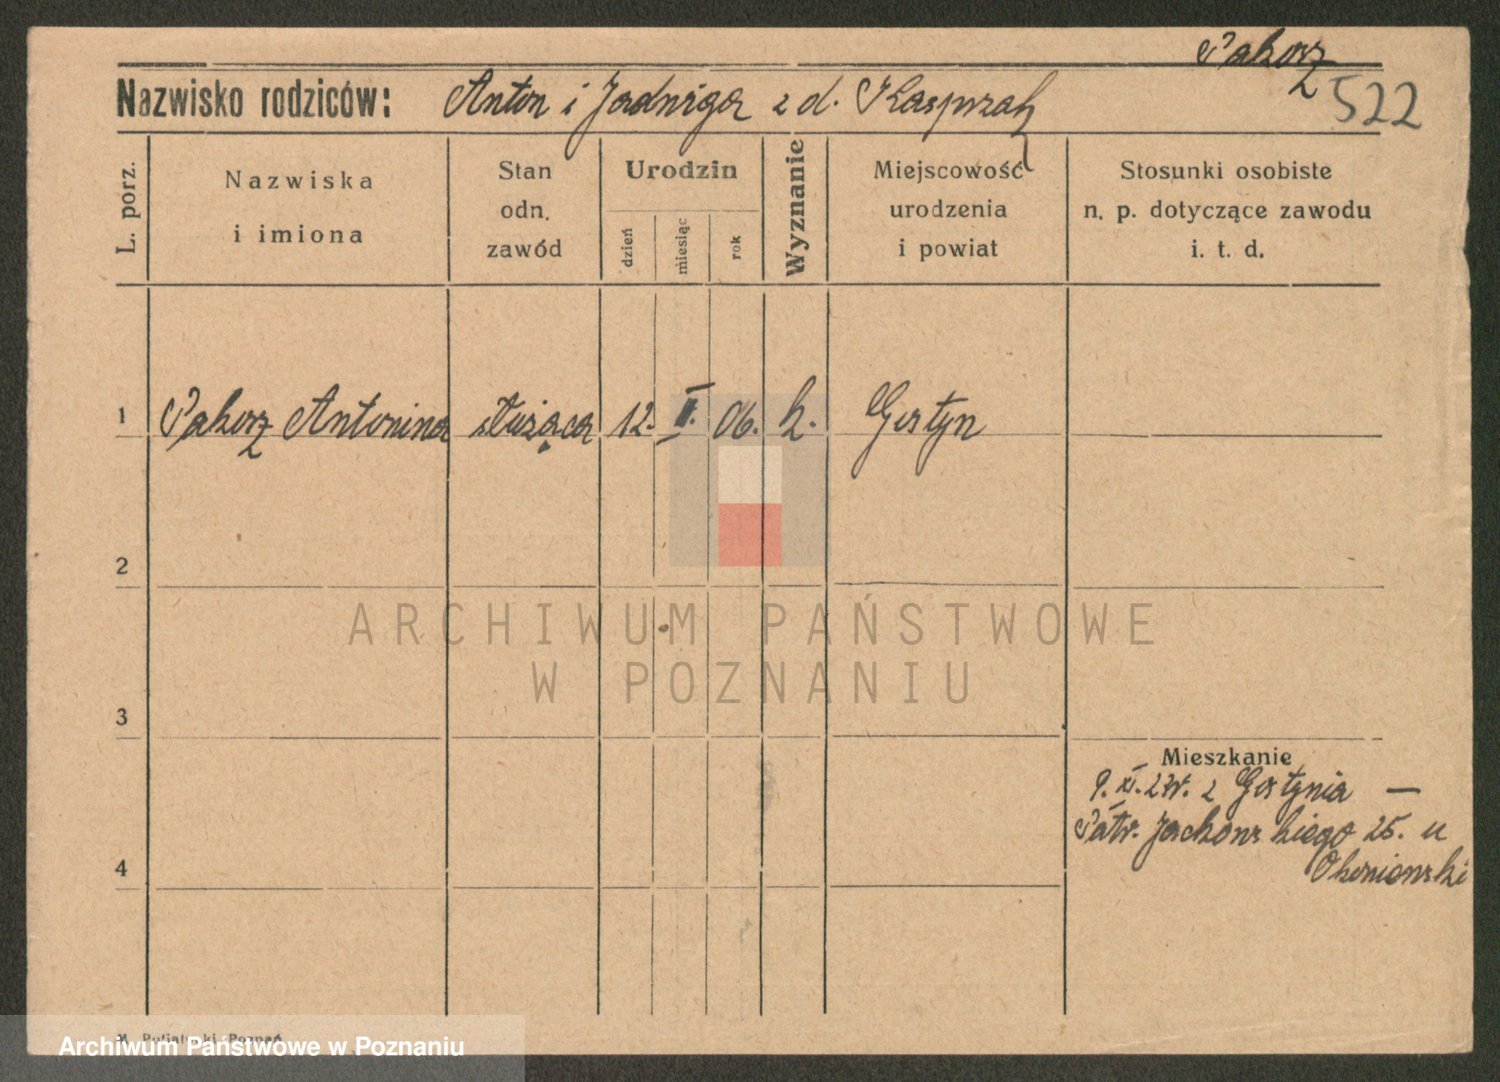 Pakosz
522
Nazwisko rodziców: Anton i Jadwiga z d. Kasprzak
L. porz.
Nazwiska
i imiona
Stan
odn.
zawód
Urodzin
dzień
miesiąc
rok
Wyznanie
Miejscowość
urodzenia
i powiat
Stosunki osobiste
n. p. dotyczące zawodu
i. t. d.
1 Pakosz Antonina służąca 12. II. 06. k. Gostyn
2
ARCHIWUM PAŃSTWOWE
W POZNANIU
3
Mieszkanie
9. XI. z Gostynia —
Jackowskiego 25. u
4
Poznań
Archiwum Państwowe w Poznaniu